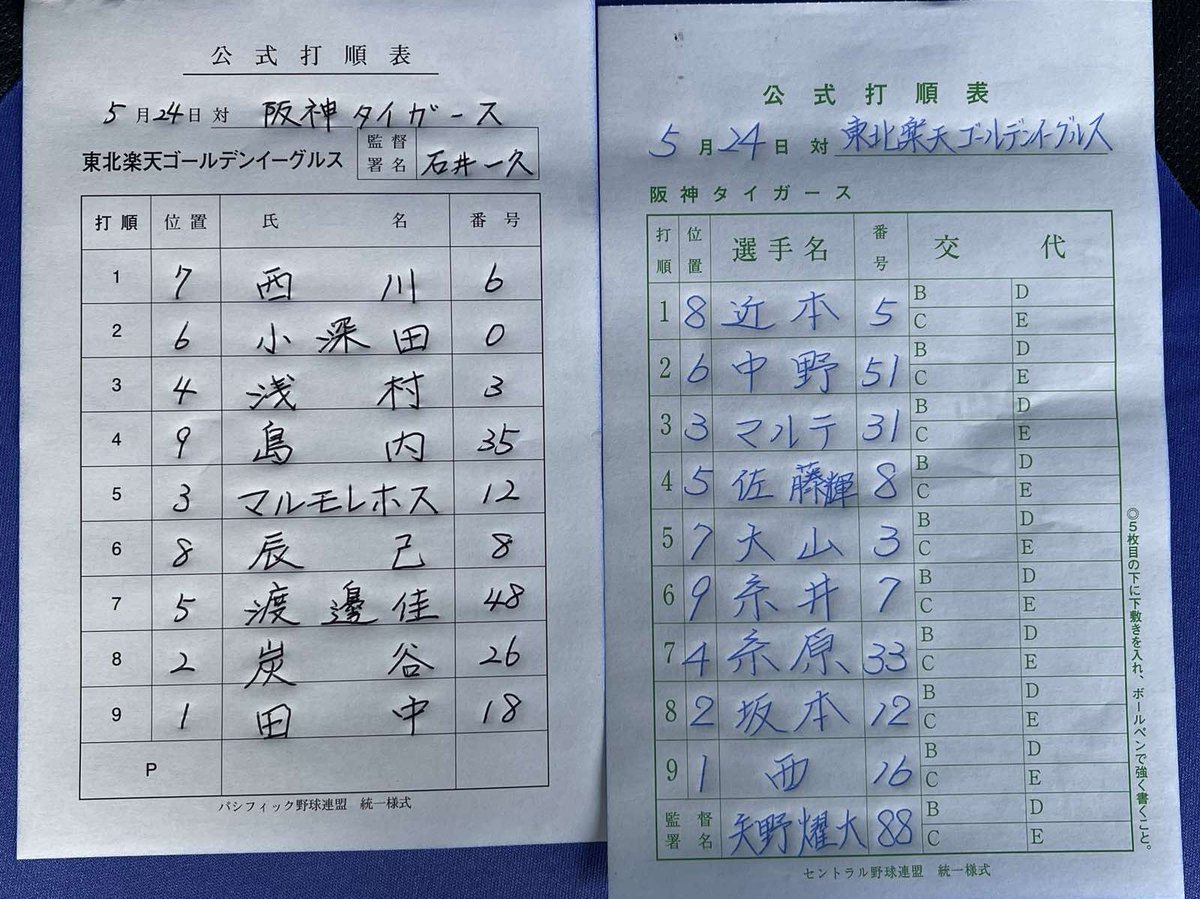 公式打順表
5月24日対 阪神タイガース
東北楽天ゴールデンイーグルス 監督署名 石井一久
打順 位置 氏名 番号
1 7 西川 6
2 6 小深田 0
3 4 浅村 3
4 9 島内 35
5 3 マルモレホス 12
6 8 辰己 8
7 5 渡邊佳 48
8 2 炭谷 26
9 1 田中 18
P
パシフィック野球連盟 統一様式
公式打順表
5月24日対 東北楽天ゴールデンイーグルス
阪神タイガース
打順 位置 選手名 番号 交代
1 8 近本 5 B D
C E
2 6 中野 51 B D
C E
3 3 マルテ 31 B D
C E
4 5 佐藤輝 8 B D
C E
5 7 大山 3 B D
C E
6 9 糸井 7 B D
C E
7 4 糸原 33 B D
C E
8 2 坂本 12 B D
C E
9 1 西 16 B D
C E
監督署名 矢野燿大 88 B D
C E
セントラル野球連盟 統一様式
◎5枚目の下に下敷きを入れ、ボールペンで強く書くこと。